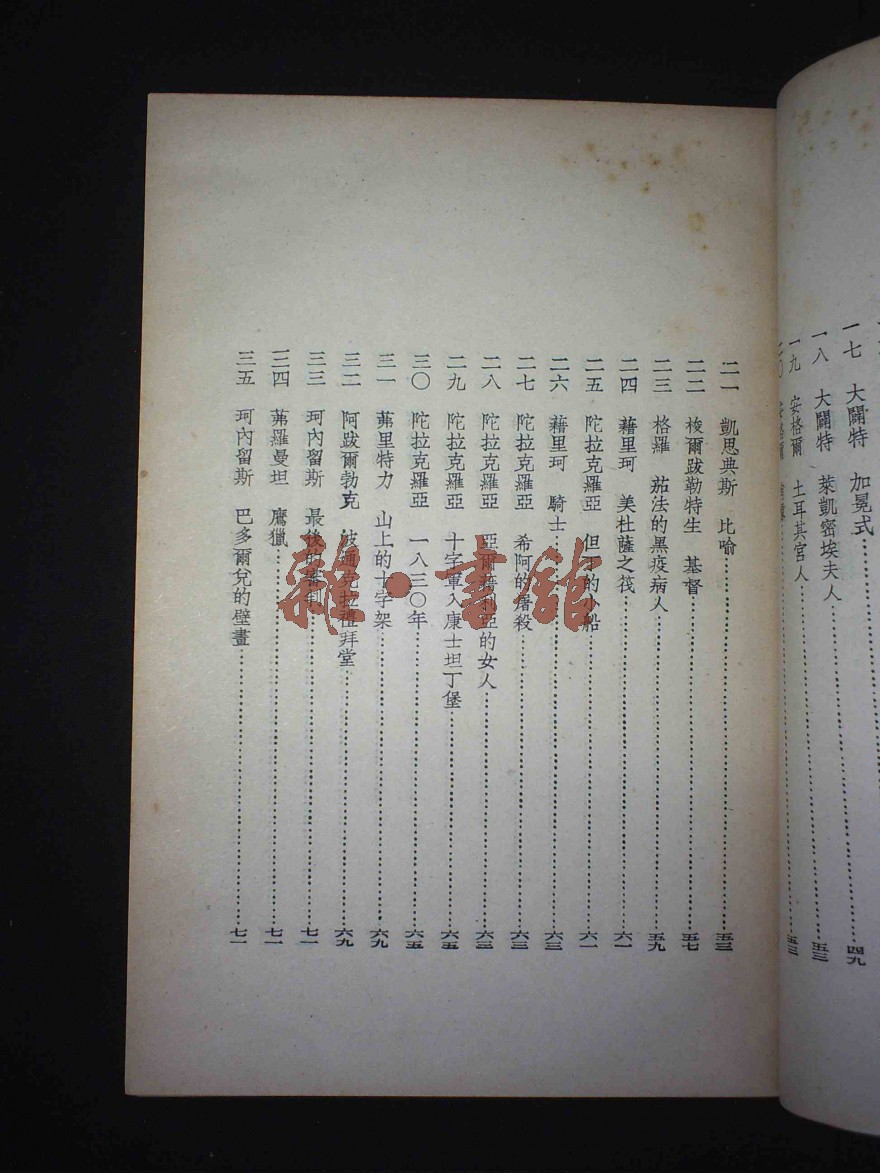 一七 大闢特 加冕式 四九
一八 大闢特 萊凱密埃夫人 五三
一九 安格爾 土耳其宮人 五三
二〇 安格爾
二一 凱思典斯 比喻 五三
二二 梭爾跋勒特生 基督 五七
二三 格羅 茄法的黑疫病人 五九
二四 藉里珂 美杜薩之筏 六一
二五 陀拉克羅亞 但 的小船 六一
二六 藉里珂 騎士 六三
二七 陀拉克羅亞 希阿的屠殺 六三
二八 陀拉克羅亞 亞爾藉利亞的女人 六三
二九 陀拉克羅亞 十字軍入康士坦丁堡 六五
三〇 陀拉克羅亞 一八三〇年 六五
三一 茀里特力 山上的十字架 六九
三二 阿跋爾勃克 波通克拉禮拜堂 六九
三三 珂內留斯 最後的審判 七一
三四 茀羅曼坦 鷹獵 七一
三五 珂內留斯 巴多爾兌的壁畫 七一
雜·書館